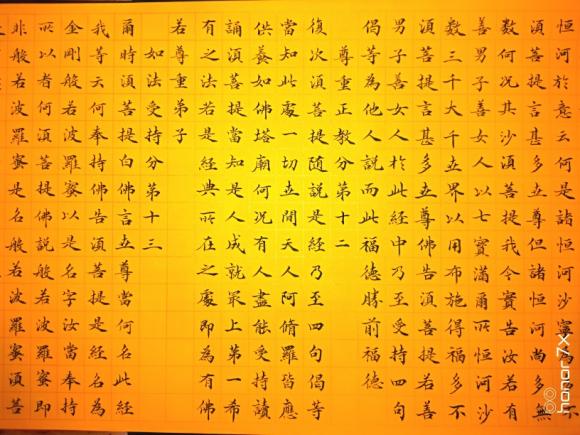 恒河於意云何是諸恒河沙寧為多不
須菩提言甚多世尊但諸恒河尚多無
數何況其沙須菩提我今實告汝若有
善男子善女人以七寶滿爾所恒河沙
數三千大千世界以用布施得福多不
須菩提言甚多世尊佛告須菩提若善
男子善女人於此經中乃至受持四句
偈等為他人說而此福德勝前福德
尊重正教分第十二
復次須菩提隨說是經乃至四句偈等
當知此處一切世間天人阿脩羅皆應
供養如佛塔廟何況有人盡能受持讀
誦須菩提當知是人成就最上第一希
有之法若是經典所在之處即為有佛
若尊重弟子
如法受持分第十三
爾時須菩提白佛言世尊當何名此經
我等云何奉持佛告須菩提是經名為
金剛般若波羅蜜以是名字汝當奉持
所以者何須菩提佛說般若波羅蜜即
非般若波羅蜜是名般若波羅蜜須菩
honor 7x